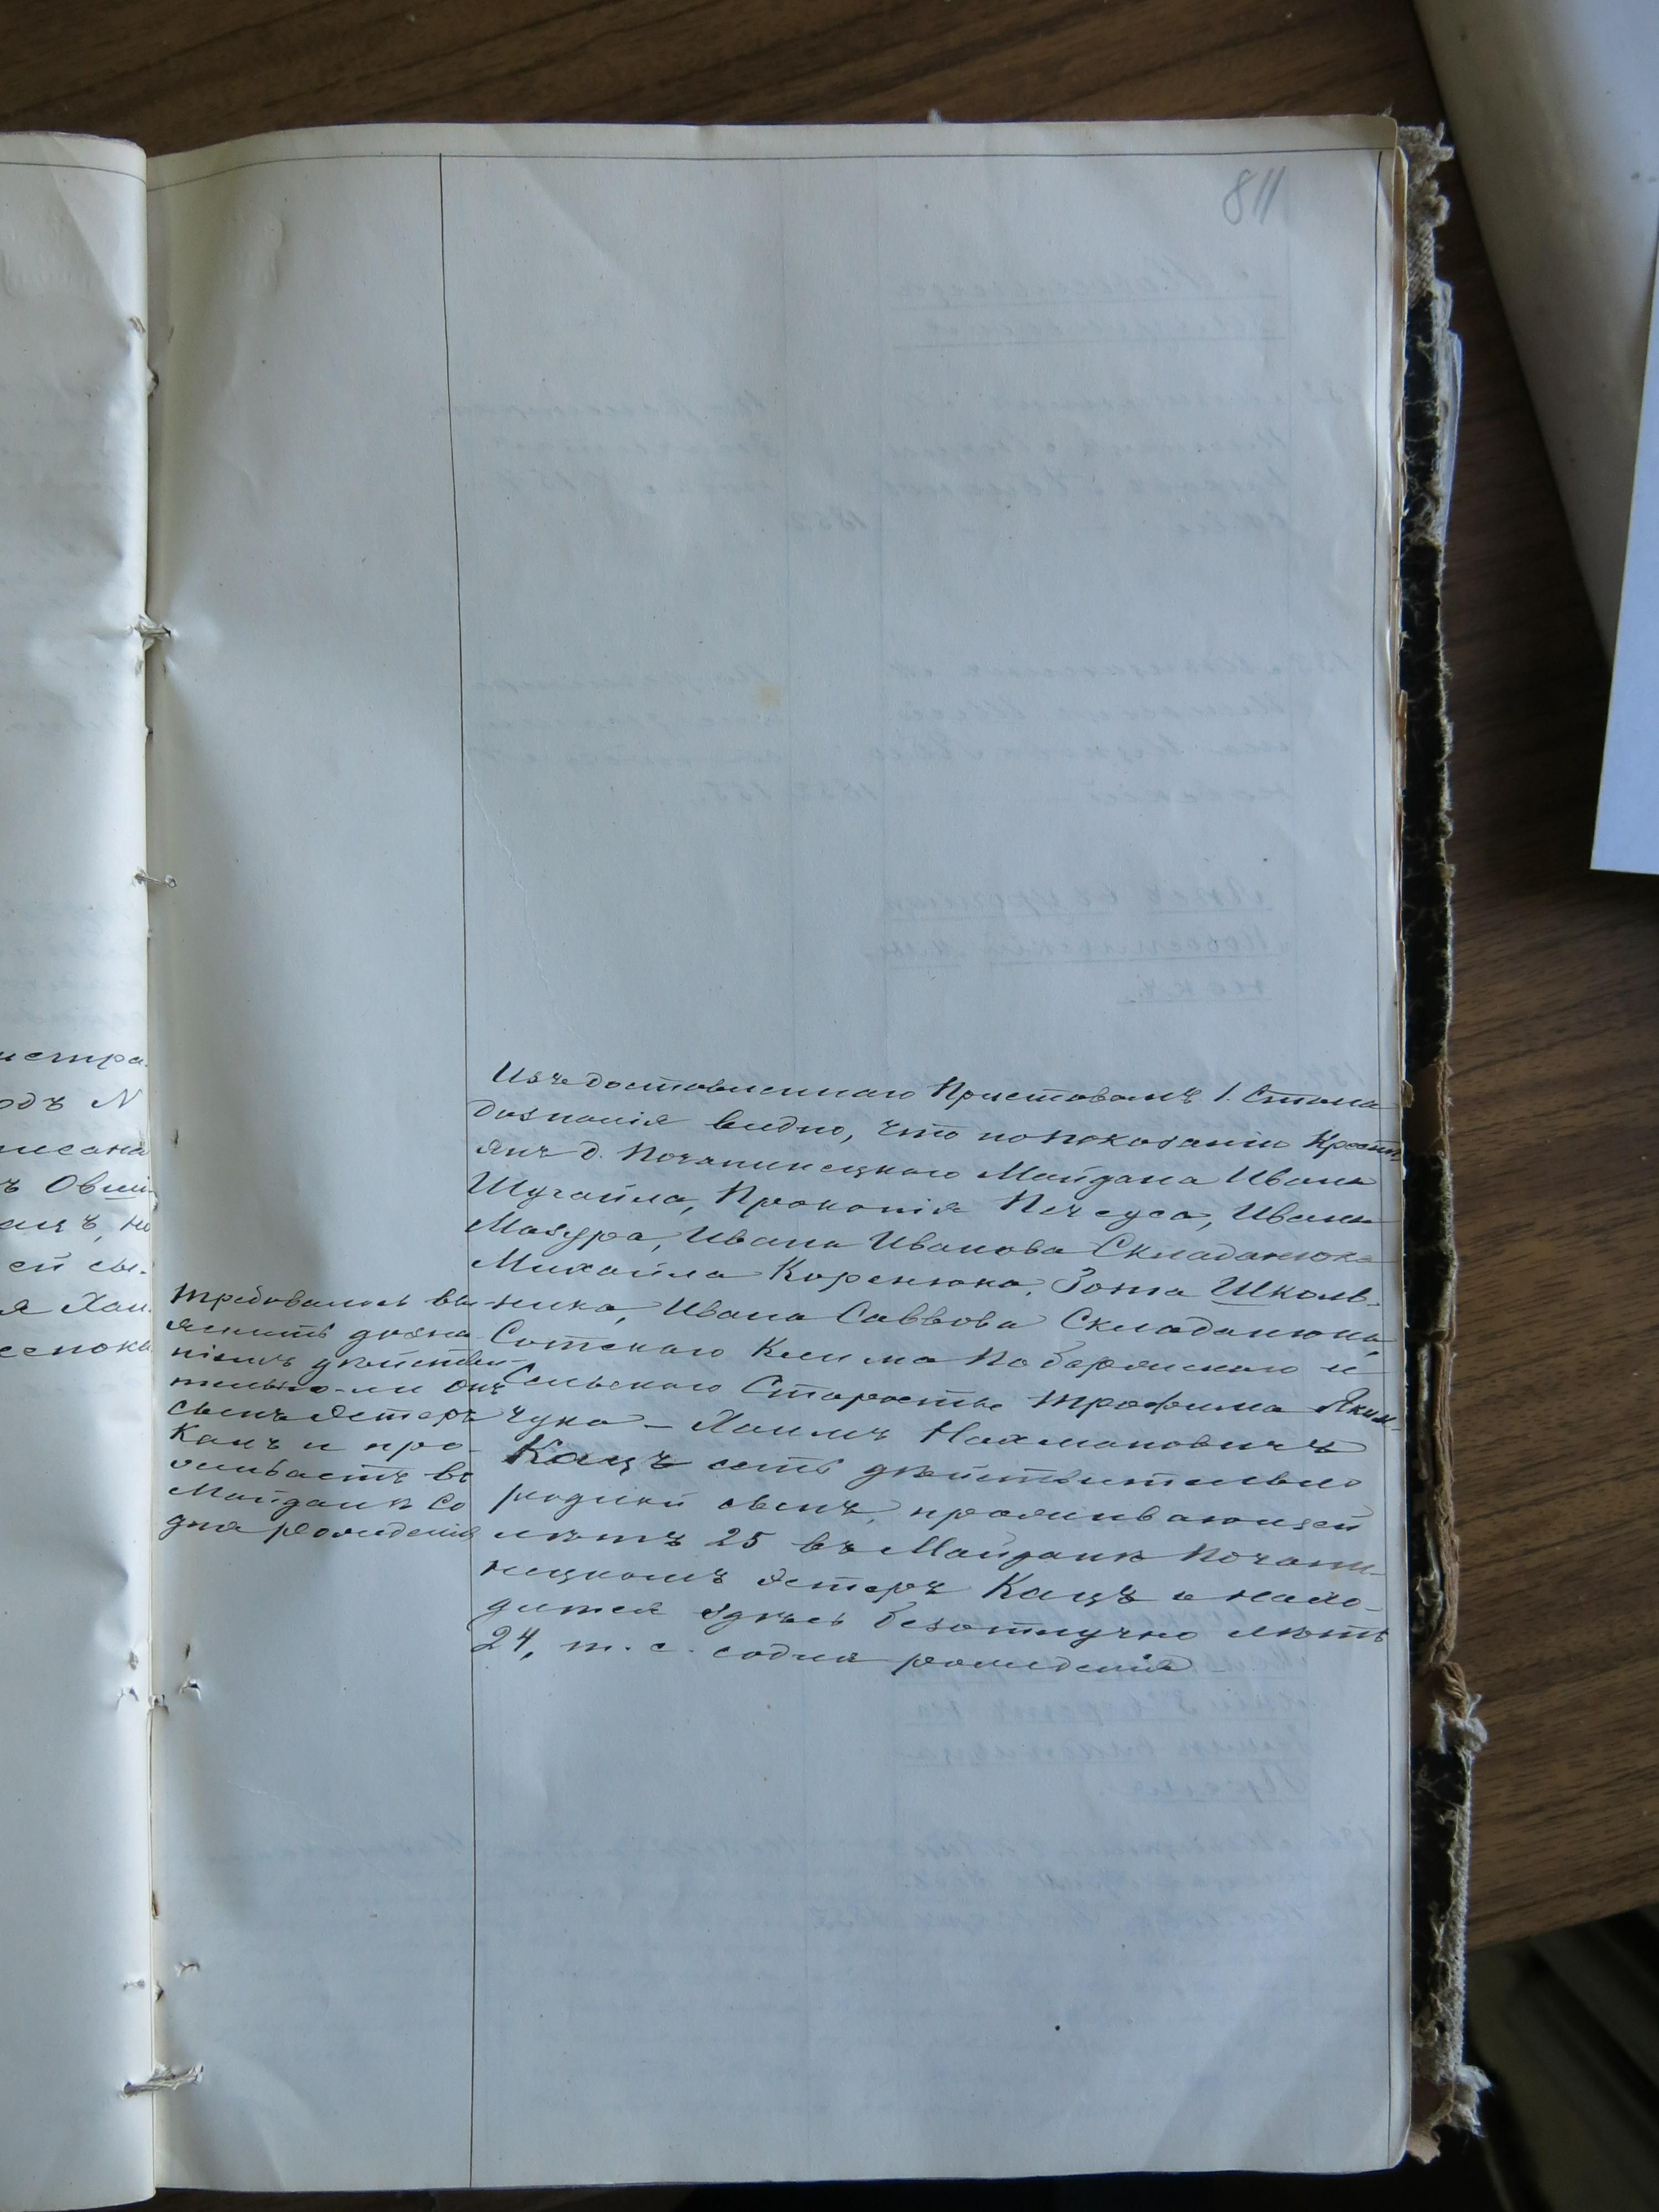 811
истра-
одъ N
писана
ъ Овши-
ацъ, но
ей сы-
я Хаи
Требовалось вы
яснить дозна
ніемъ действи-
тельно-ли онъ
сынъ Эстеръ
Кацъ и про-
живаетъ въ
Майданѣ со
дня рожденія
Изъ доставленнаго Приставомъ 1 Стана
дознанія видно, что по показанію Крестъ
янъ д. Почапинецкаго Майдана Ивана
Шугайла, Прокопія Печеуса, Ивана
Мазура, Ивана Иванова Складанюка
Михайла Коренюка, Зота Школь-
ника, Ивана Саввова Складанюка,
Сотскаго Клима Побережскаго и
Сельскаго Старосты Трофима Яким-
чука – Хаимъ Нахмановичъ
Кацъ есть дѣйствительно
родной сынъ, проживающей
лѣтъ 25 въ Майданѣ Почапи-
нецкомъ Эстеръ Кацъ и нахо-
дится здѣсь безотлучно лѣтъ
24, т. е. со дня рожденія